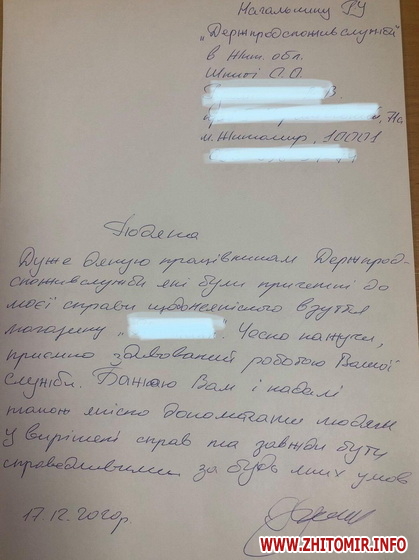 Начальнику ГУ
"Держпродспоживслужбі
в Жит. обл.
О.О.
м. Житомир, 10001
Подяка
Дуже дякую працівникам Держпрод-
споживслужби які були причетні до
моєї справи щодо неякісного взуття
магазину " ". Чесно кажучи,
приємно здивований роботою Вашої
служби. Бажаю Вам і надалі
також якісно допомагати людям
у вирішені справ та завжди бути
справедливими за будь яких умов
17.12.2020р.
WWW.ZHITOMIR.INFO